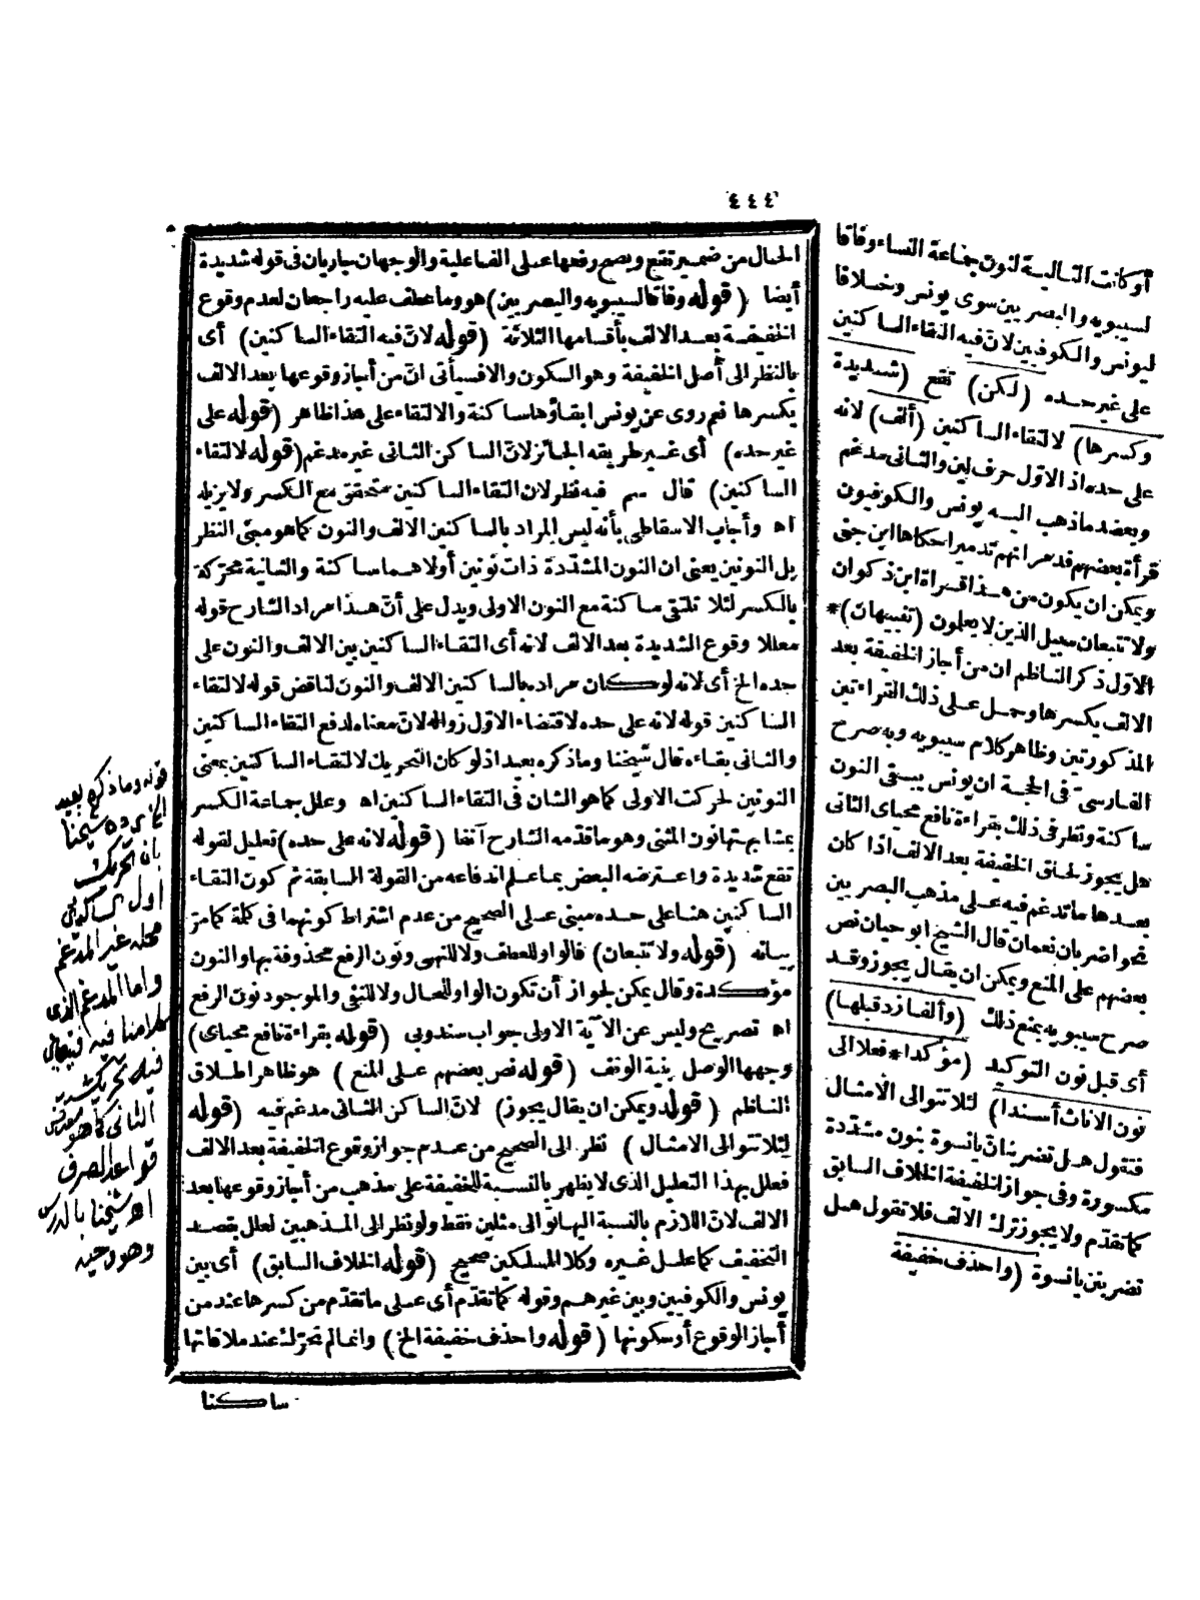 ٤٤٤
أو كانت التالية لنون جماعة النساء وفاقا
لسيبويه والبصريين سوى يونس وخلافا
ليونس والكوفيين لان فيه التقاء الساكنين
على غير حده (لكن) تقع (شديدة
وكسرها) لالتقاء الساكنين (ألف) لانه
على حده اذ الاول حرف لين والثانى مدغم
ويعضد ماذهب اليه يونس والكوفيون
قراءة بعضهم فدمرانهم تدميرا حكاها ابن جنى
ويمكن ان يكون من هذا قراءة ابن ذكوان
ولا تتبعان سبيل الذين لا يعلمون (تنبيهان)*
الاوّل ذكر الناظم ان من أجاز الخفيفة بعد
الالف يكسرها وحمل على ذلك القراءتين
المذكورتين وظاهر كلام سيبويه وبه صرح
الفارسى فى الحجة ان يونس يبقى النون
ساكنة ونظر فى ذلك بقراءة نافع محياى الثانى
هل يجوز لحاق الخفيفة بعد الالف اذا كان
بعدها ما تدغم فيه على مذهب البصريين
نحو اضربان نعمان قال الشيخ ابو حيان نص
بعضهم على المنع ويمكن ان يقال يجوز وقد
صرح سيبويه بمنع ذلك (وألفا زد قبلها)
أى قبل نون التوكيد (مؤكدا* فعلا الى
نون الاناث أسندا) لئلا تتوالى الأمثال
فتقول هل تضربنانّ يا نسوة بنون مشدّدة
مكسورة وفى جواز الخفيفة الخلاف السابق
كما تقدّم ولا يجوز ترك الالف فلا تقول هل
تضربنن يا نسوة (واحذف خفيفة
الحال من ضمير تقع ويصح رفعها على الفاعلية والوجهان جاريان فى قوله شديدة
أيضا (قوله وفاقا لسيبويه والبصريين) هو وما عطف عليه راجعان لعدم وقوع
الخفيفة بعد الالف بأقسامها الثلاثة (قوله لانّ فيه التقاء الساكنين) أى
بالنظر الى أصل الخفيفة وهو السكون والا فسيأتى انّ من أجاز وقوعها بعد الالف
يكسرها نم روى عن يونس ابقاؤها ساكنة والالتقاء على هذا ظاهر (قوله على
غير حده) أى غير طريقه الجائز لانّ الساكن الثانى غير مدغم (قوله لالتقاء
الساكنين) قال سم فيه نظر لان التقاء الساكنين متحقق مع الكسر ولا يزيله
اه وأجاب الاسقاطى بأنه ليس المراد بالساكنين الالف والنون كما هو مبنى النظر
بل النونين يعنى ان النون المشدّدة ذات نونين أولاهما ساكنة والثانية محرّكة
بالكسر لئلا تلتقى ساكنة مع النون الاولى ويدل على أنّ هذا مراد الشارح قوله
معللا وقوع الشديدة بعد الالف لانه أى التقاء الساكنين بين الالف والنون على
حده الخ أى لانه لو كان مراده بالساكنين الالف والنون لناقض قوله لالتقاء
الساكنين قوله لانه على حده لاقتضاء الاوّل زواله لانّ معناه لدفع التقاء الساكنين
والثانى بقاءه قال شيخنا وما ذكره بعيد اذ لو كان التحريك لالتقاء الساكنين بمعنى
النونين لحركت الاولى كما هو الشان فى التقاء الساكنين اه وعلل جماعة الكسر
بمشابهتها نون المثنى وهو ما قدّمه الشارح آنفا (قوله لانه على حده) تعليل لقوله
تقع شديدة واعترضه البعض بما علم اندفاعه من القولة السابقة ثم كون التقاء
الساكنين هنا على حده مبنى على الصحيح من عدم اشتراط كونهما فى كلمة كما مرّ
بيانه (قوله ولا تتبعان) قالوا وللعطف ولا للنهى ونون الرفع محذوفة بها والنون
مؤكدة وقال يمكن بلجواز أن تكون الواو للحال ولا للنفى والموجود نون الرفع
اه تصريح وليس عن الآية الاولى جواب سندوبى (قوله بقراءة نافع محياى)
وجهها الوصل بنية الوقف (قوله نص بعضهم على المنع) هو ظاهر اطلاق
الناظم (قوله ويمكن ان يقال يجوز) لانّ الساكن الثانى مدغم فيه (قوله
لئلا تتوالى الامثال) نظر الى الصحيح من عدم جواز وقوع الخفيفة بعد الالف
فعلل بهذا التعليل الذى لا يظهر بالنسبة للخفيفة على مذهب من أجاز وقوعها بعد
الالف لان اللازم بالنسبة اليها توالى مثلين فقط ولو نظر الى المذهبين لعلل بقصد
التخفيف كما علل غيره وكلا المسلكين صحيح (قوله الخلاف السابق) أى بين
يونس والكوفيين وبين غيرهم وقوله كما تقدّم أى على ما تقدّم من كسرها عند من
أجاز الوقوع أو سكونها (قوله واحذف خفيفة الخ) وانما لم تحرّك عند ملاقاتها
ساكنا
قوله وما ذكره بعيد
الخ رده شيخنا
بان تحريك
اول الساكنين
محله غير المدغم
واما المدغم الذى
كلامنا فيه فيقال
فيه تحريك
الثانى كما هو مقرر فى
قواعد الصرف
اه شيخنا بالدرس
وهو وجيه